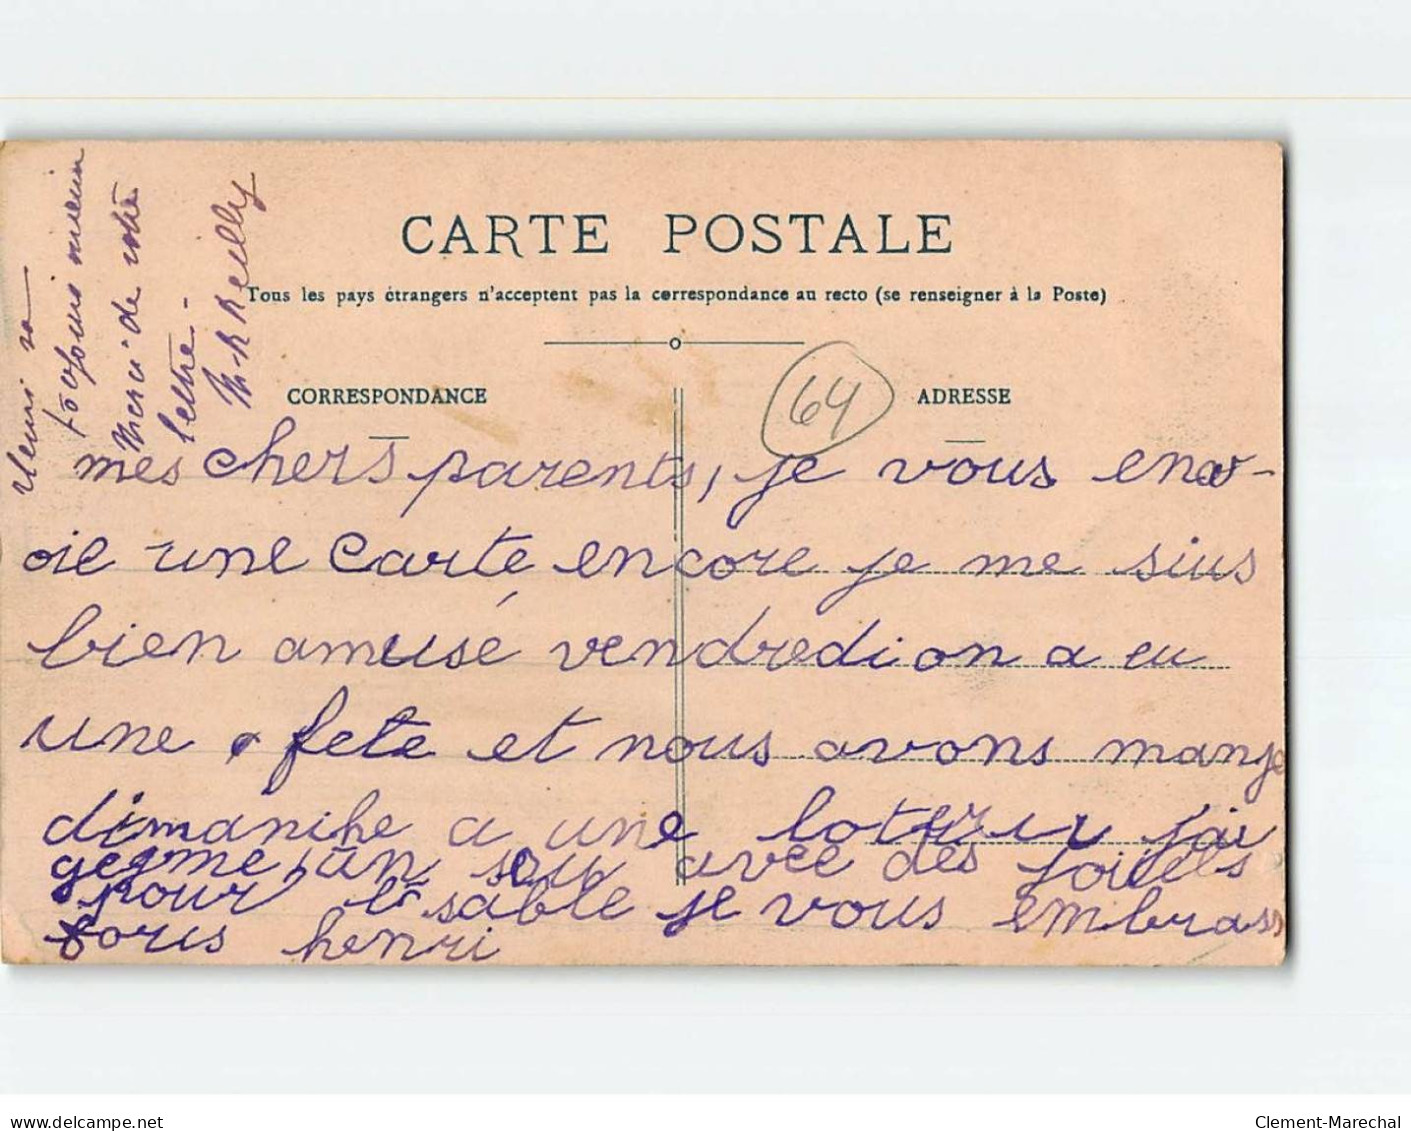 Henri va
toujours mieux
Merci de votre
lettre -
CARTE POSTALE
Tous les pays étrangers n'acceptent pas la correspondance au recto (se renseigner à la Poste)
CORRESPONDANCE
64
ADRESSE
mes chers parents, je vous env-
oie une carte encore je me sius
bien amusé vendredi on a eu
une fete et nous avons mange
dimanche a une loterie j'ai
gegme un seau avec des jouets
pour le sable je vous embrass
fors henri
delcampe.net
Clement-Marechal